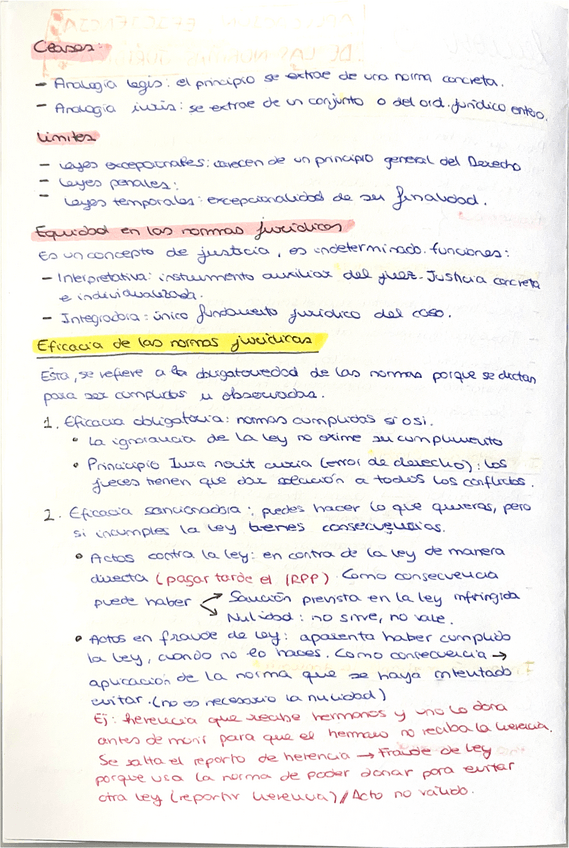 Clases:
- Analogía legis: el principio se extrae de una norma concreta.
- Analogía iuris: se extrae de un conjunto o del ord. jurídico entero.
Límites
- Leyes excepcionales: carecen de un principio general del Derecho
- Leyes penales:
- Leyes temporales: excepcionalidad de su finalidad.
Equidad en las normas jurídicas
Es un concepto de justicia, es indeterminado. funciones:
- Interpretativa: instrumento auxiliar del juez. Justicia concreta
e individualizada.
- Integradora: único fundamento jurídico del caso.
Eficacia de las normas jurídicas
Esta, se refiere a la obligatoriedad de las normas porque se dictan
para ser cumplidas u observadas.
1. Eficacia obligatoria: normas cumplidas sí o sí.
• La ignorancia de la ley no exime su cumplimiento
• Principio Iura novit curia (error de derecho): los
jueces tienen que dar solución a todos los conflictos.
2. Eficacia sancionadora: puedes hacer lo que quieras, pero
si incumples la ley tienes consecuencias.
• Actos contra la ley: en contra de la ley de manera
directa (pagar tarde el IRPF). Como consecuencia
puede haber Sanción prevista en la ley infringida
Nulidad: no sirve, no vale.
• Actos en fraude de ley: aparenta haber cumplido
la ley, cuando no lo haces. Como consecuencia →
aplicación de la norma que se haya intentado
evitar. (no es necesario la nulidad)
Ej: herencia que recibe hermanos y uno lo dona
antes de morir para que el hermano no reciba la herencia.
Se salta el reparto de herencia → Fraude de Ley
porque usa la norma de poder donar para evitar
otra ley (repartir herencia) // Acto no válido.